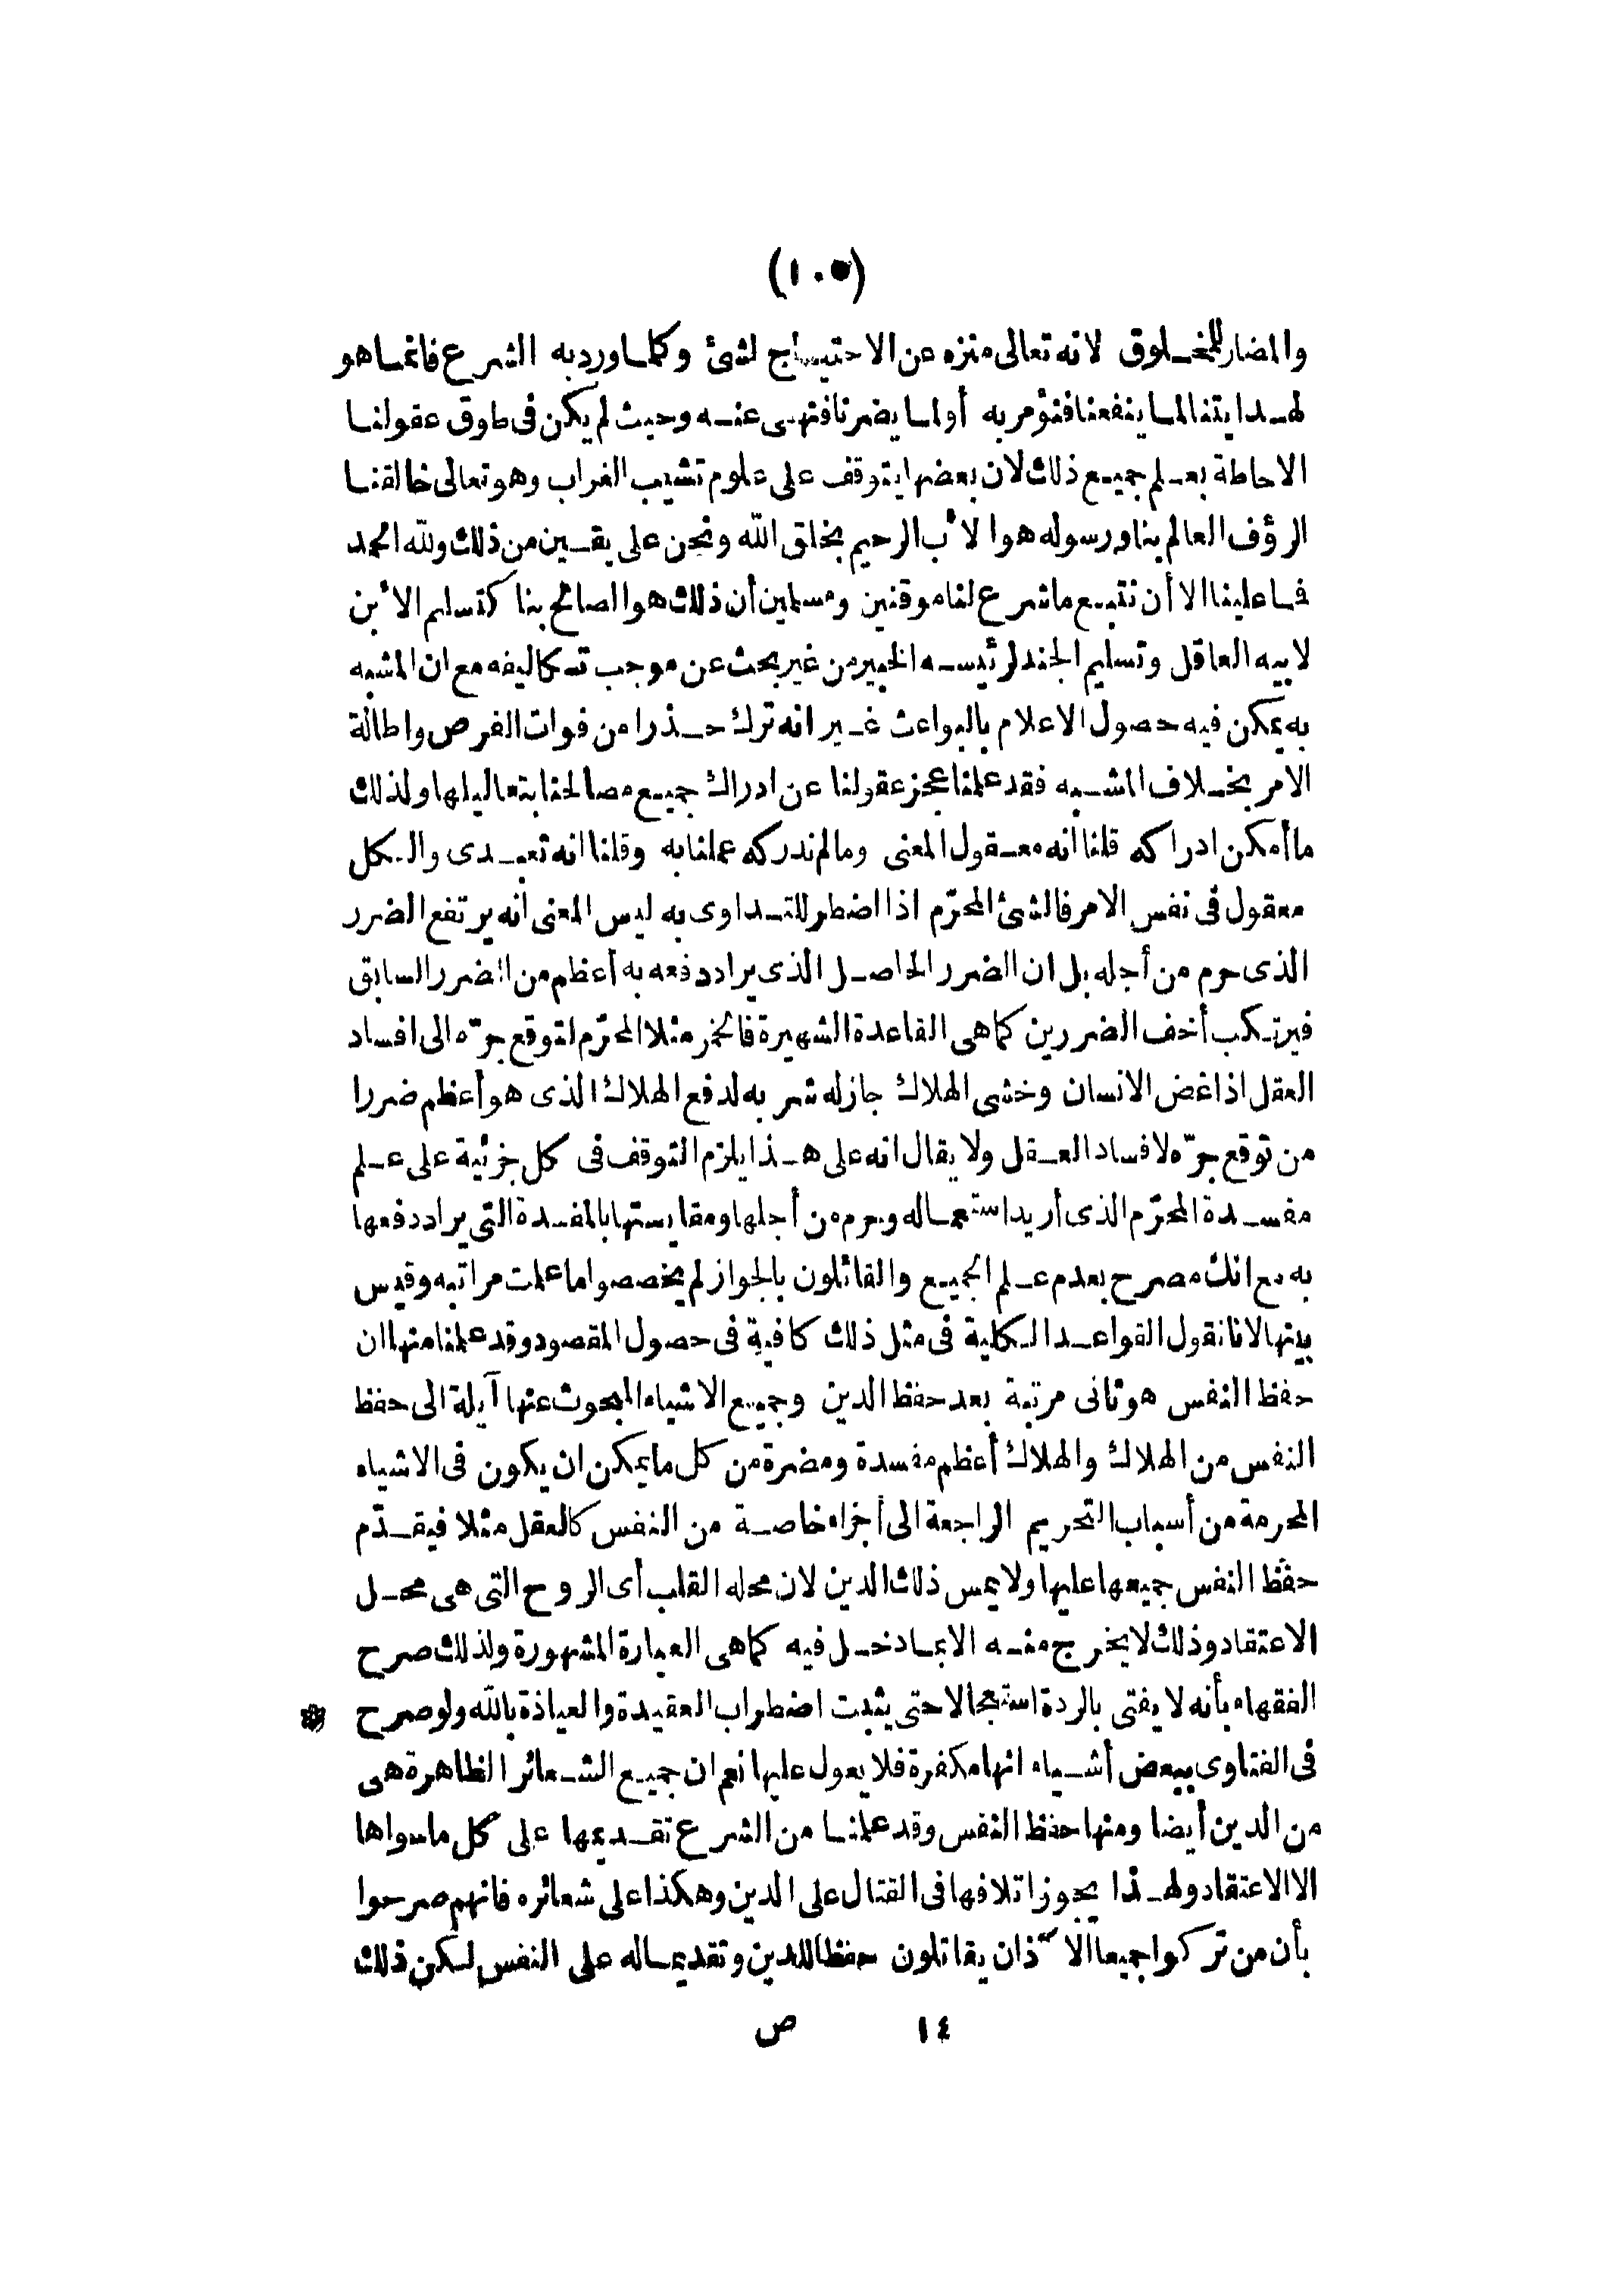 (١٠٥)
والمضار للمخلوق لانه تعالى منزه عن الاحتياج لشئ وكلما ورد به الشرع فانما هو
لهدايتنا لما ينفعنا فنؤمر به أولما يضرنا فننهى عنه وحيث لم يكن فى طاوق عقولنا
الاحاطة بعلم جميع ذلك لان بعضها يتوقف على علوم تشيب الغراب وهو تعالى خالقنا
الرؤف العالم بنا ورسوله هو الأب الرحيم بخلق الله ونحن على يقين من ذلك ولله الحمد
فاعلينا الا أن نتبع ما شرع لنا موقنين ومسلمين أن ذلك هو الصالح بنا كتسليم الأبن
لابيه العاقل وتسليم الجند لرئيسه الخبير من غير بحث عن موجب تكاليفه مع ان المشبه
به يمكن فيه حصول الاعلام بالبواعث غير انه ترك حذرا من فوات الفرص واطالة
الامر بخلاف المشبه فقد علمنا عجز عقولنا عن ادراك جميع مصالحنا بتعاليلها ولذلك
ما أمكن ادراكه قلنا انه معقول المعنى وما لم ندركه عملنا به وقلنا انه تعبدى والكل
معقول فى نفس الامر فالشئ المحرّم اذا اضطر للتداوى به ليس المعنى أنه يرتفع الضرر
الذى حرم من أجله بل ان الضرر الحاصل الذى يراد دفعه به أعظم من الضرر السابق
فيرتكب أخف الضررين كما هى القاعدة الشهيرة فالخمر مثلا المحرّم لتوقع جرّه الى افساد
العقل اذا غض الانسان وخشى الهلاك جاز له شربه لدفع الهلاك الذى هو أعظم ضررا
من توقع جرّه لافساد العقل ولا يقال انه على هذا يلزم التوقف فى كل جزئية على علم
مفسدة المحرّم الذى أريد استعماله وحرم من أجلها ومقايستها بالمفسدة التى يراد دفعها
به مع انك مصرح بعدم علم الجميع والقائلون بالجواز لم يخصصوا ما علمت مراتبه وقيس
بينها لانا نقول القواعد الكلية فى مثل ذلك كافية فى حصول المقصود وقد علمنا منها ان
حفظ النفس هو ثانى مرتبة بعد حفظ الدين وجميع الاشياء المبحوث عنها آيلة الى حفظ
النفس من الهلاك والهلاك أعظم مفسدة ومضرة من كل ما يمكن ان يكون فى الاشياء
المحرمة من أسباب التحريم الراجعة الى أجزاء خاصة من النفس كالعقل مثلا فيقدّم
حفظ النفس جميعها عليها ولا يمس ذلك الدين لان محله القلب أى الروح التى هى محل
الاعتقاد وذلك لا يخرج منه الا بما دخل فيه كما هى العبارة المشهورة ولذلك صرح
الفقهاء بأنه لا يفتى بالردة استعجالا حتى يثبت اضطراب العقيدة والعياذة بالله ولو صرح *
فى الفتاوى ببعض أشياء انها مكفرة فلا يعول عليها نعم ان جميع الشعائر الظاهرة هى
من الدين أيضا ومنها حفظ النفس وقد علمنا من الشرع تقديمها على كل ما سواها
الا الاعتقاد ولهذا يجوز اتلافها فى القتال على الدين وهكذا على شعائره فانهم صرحوا
بأن من تركوا جميعا الآذان يقاتلون حفظا للدين وتقديما له على النفس لكن ذلك
١٤ ص